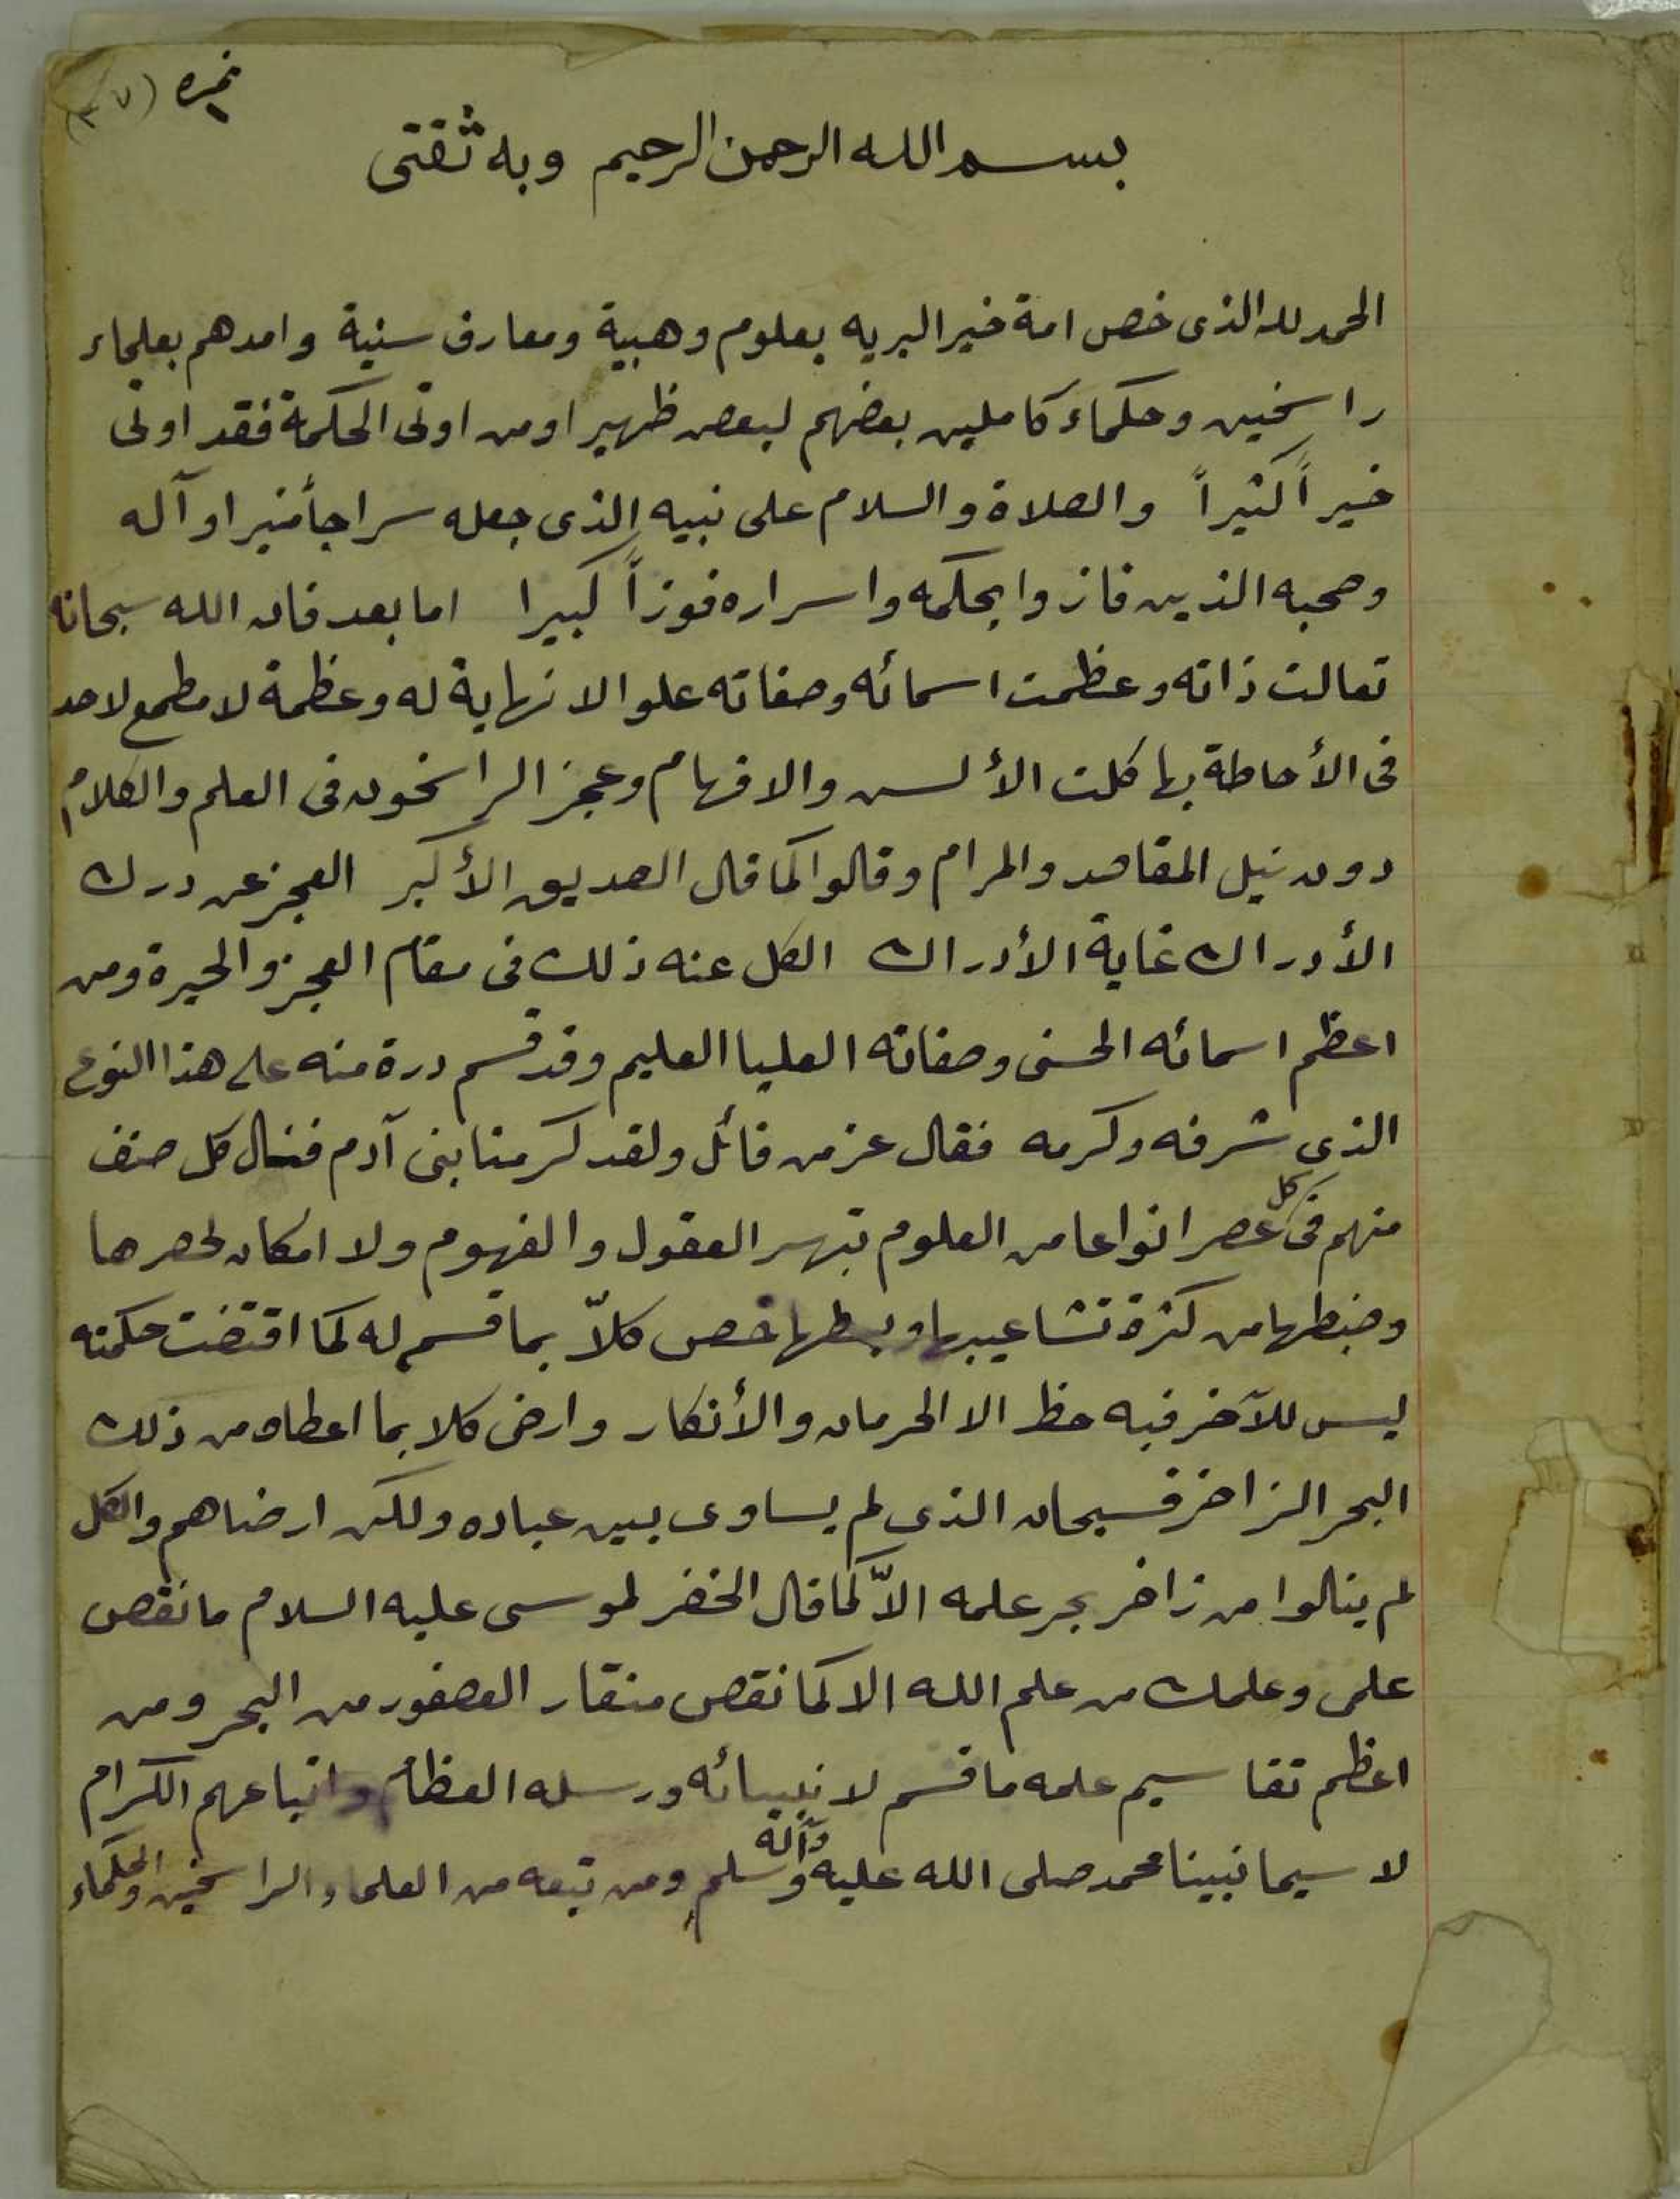 نمره (٣٧)
بسم الله الرحمن الرحيم وبه ثقتى
الحمد لله الذى خص امة خير البريه بعلوم وهبية ومعارف سنية وامدهم بعلماء
راسخين وحكماء كاملين بعضهم لبعض ظهيرا ومن اوتى الحكمة فقد اوتى
خيراً كثيراً والصلاة والسلام على نبيه الذى جعله سراجاً منيرا وآله
وصحبه الذين فازوا بحكمه واسراره فوزاً كبيرا اما بعد فان الله سبحانه
تعالت ذاته وعظمت اسمائه وصفاته علوا لا نهاية له وعظمة لا مطمع لاحد
فى الأحاطة بها كلت الألسن والافهام وعجز الراسخون فى العلم والكلام
دون نيل المقاصد والمرام وقالوا كما قال الصديق الأكبر العجز عن درك
الأدراك غاية الأدراك الكل عنه ذلك فى مقام العجز والحيرة ومن
اعظم اسمائه الحسنى وصفاته العليا العليم وقد قسم درة منه على هذا النوع
الذى شرفه وكرمه فقال عز من قائل ولقد كرمنا بنى آدم فنال كل صنف
منهم فى كل عصر انواعا من العلوم تبهر العقول والفهوم ولا امكان لحصرها
وضبطها من كثرة تشاعيبها وبسطها خص كلاّ بما قسم له كما اقتضت حكمته
ليس للآخر فيه حظ الا الحرمان والأنكار وارضى كلا بما اعطاه من ذلك
البحر الزاخر فسبحان الذى لم يساوى بين عباده ولكن ارضاهم والكل
لم ينالوا من زاخر بحر علمه الاّ كما قال الخضر لموسى عليه السلام ما نقص
علمى وعلمك من علم الله الا كما نقص منقار العصفور من البحر ومن
اعظم تقاسيم علمه ما قسم لانبيائه ورسله العظام واتباعهم الكرام
لا سيما نبينا محمد صلى الله عليه وآله وسلم ومن تبعه من العلماء الراسخين والحكماء